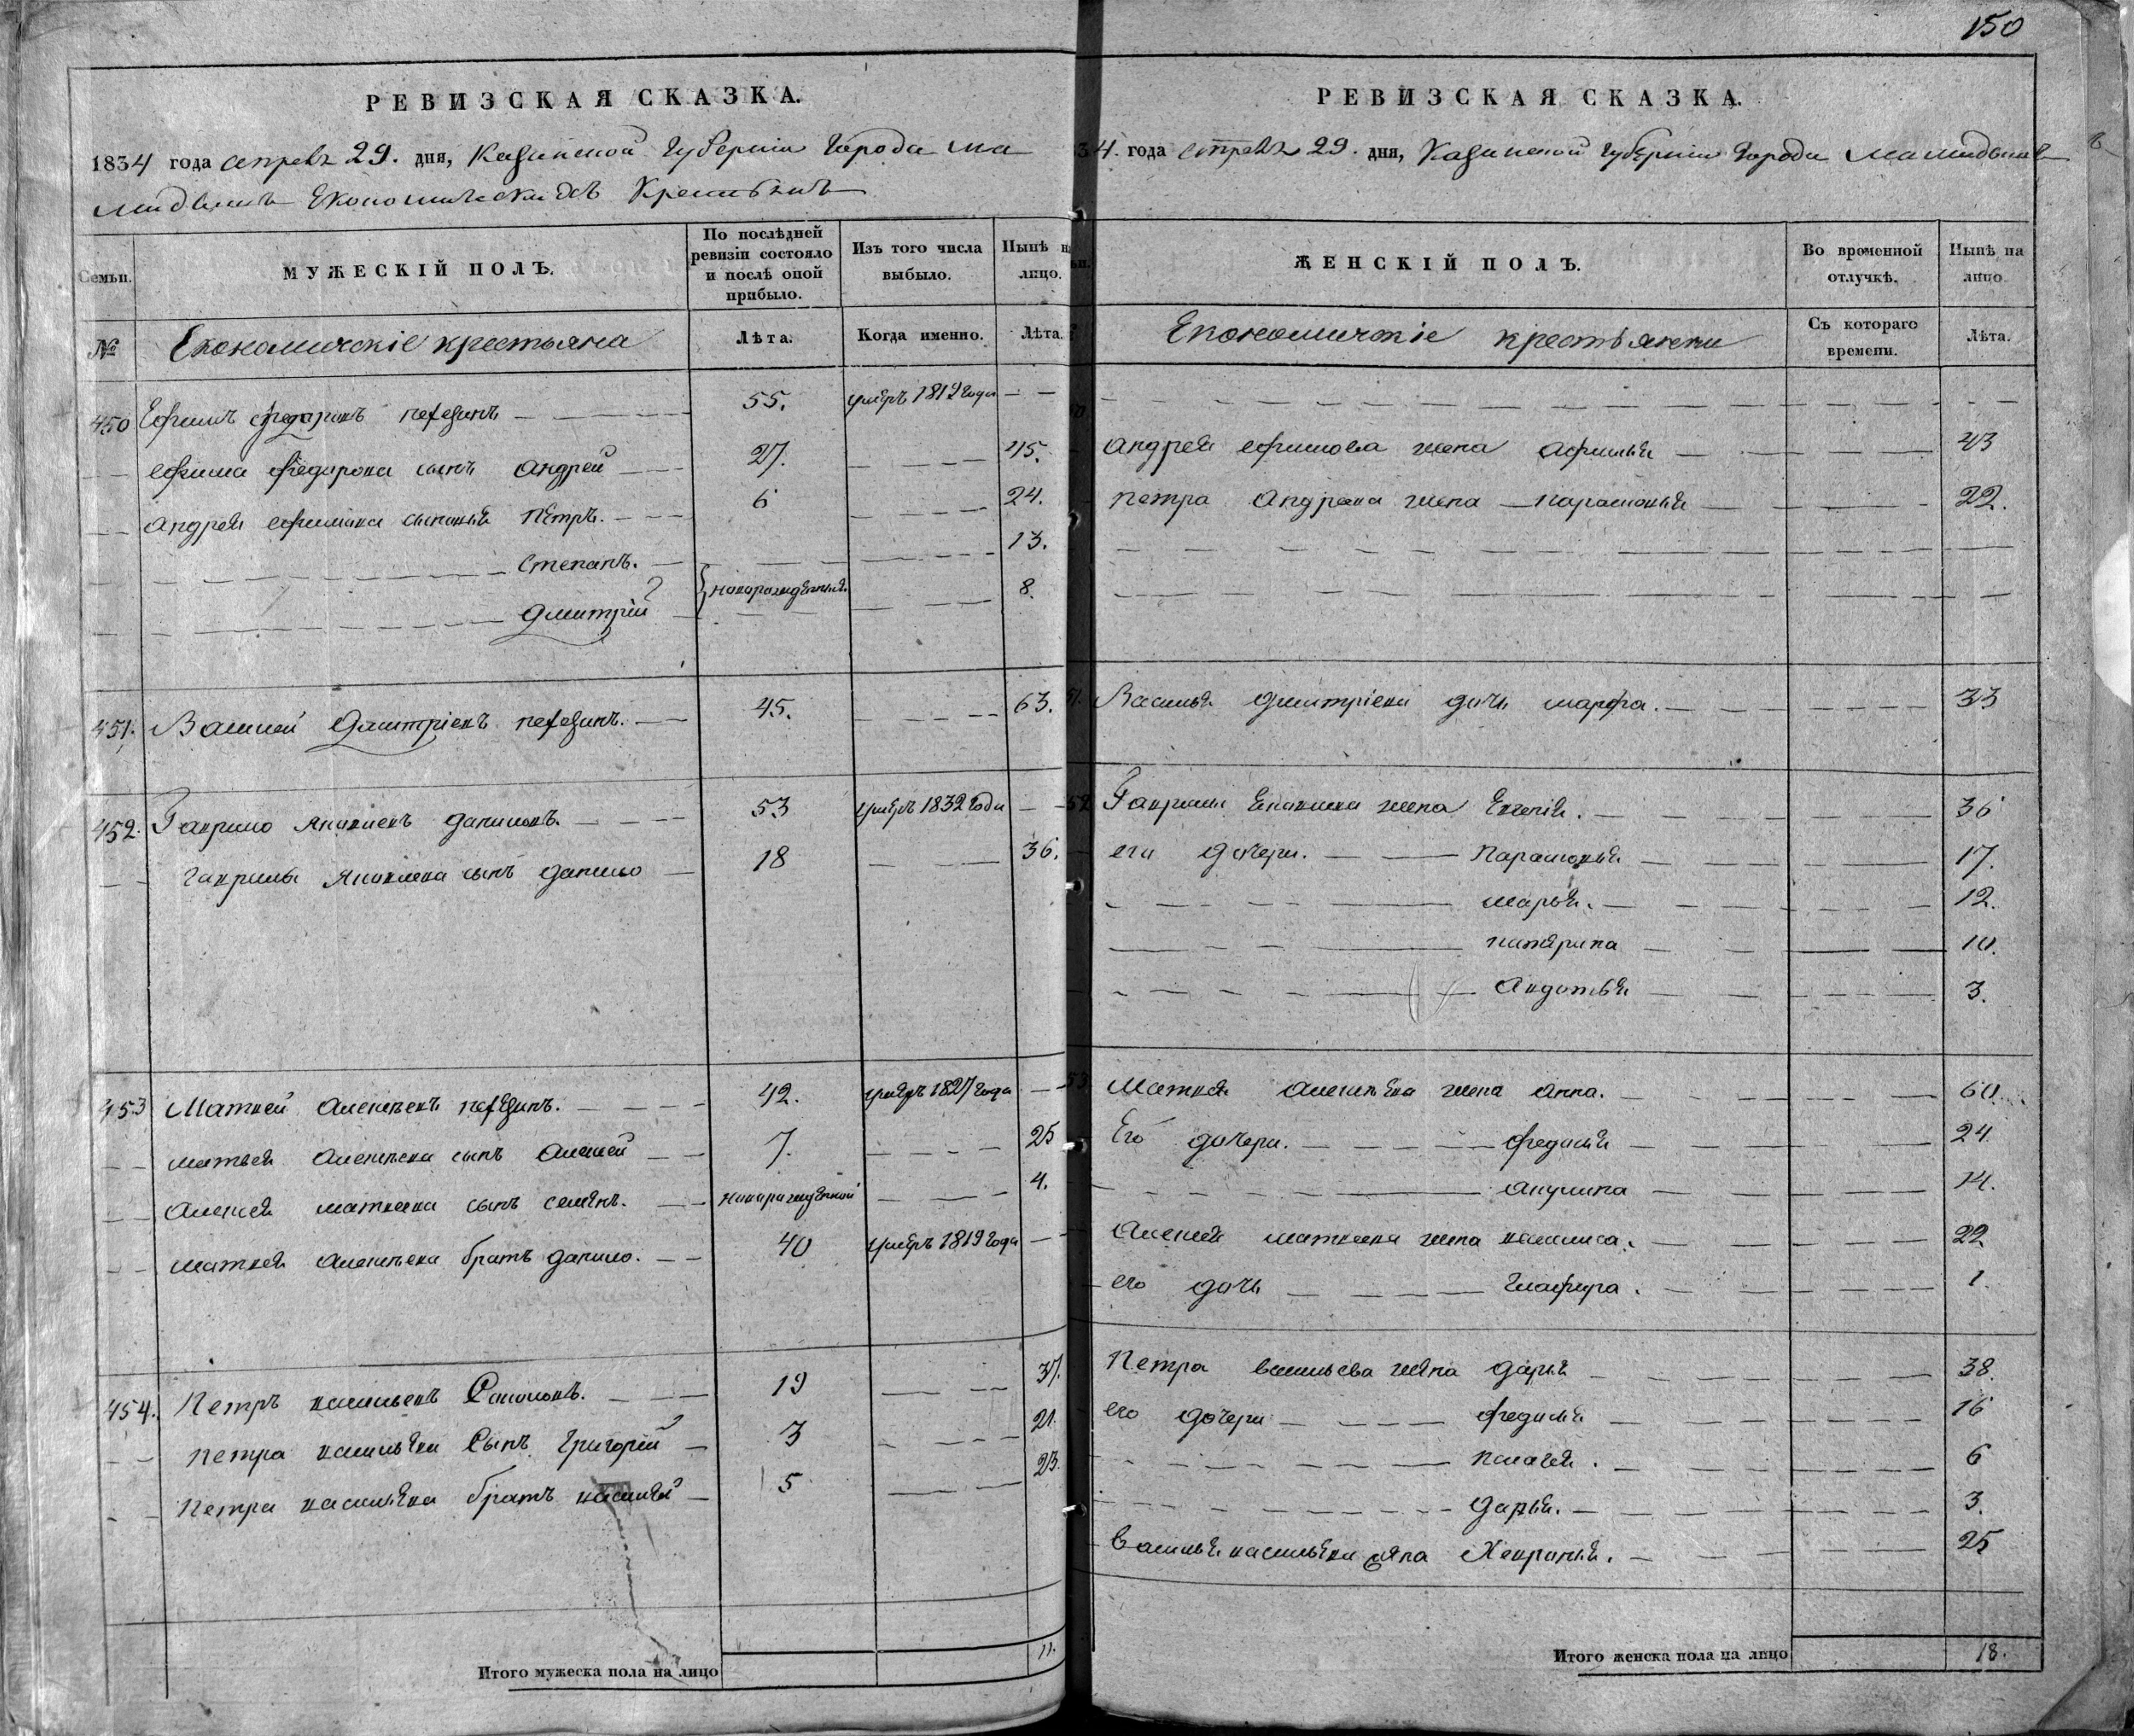 150
РЕВИЗСКАЯ СКАЗКА.
1834 года апреля 29. дня, Казанской Губернии Города Ма
мадыша Економическихъ Крестьянъ
Семьи.
МУЖЕСКІЙ ПОЛЪ.
По послѣдней ревизіи состояло и послѣ оной прибыло.
Изъ того числа выбыло.
Нынѣ на лицо.
№
Економическіе крестьяна
Лѣта.
Когда именно.
Лѣта.
450 Ефимъ Федоровъ 55. умеръ 1812 года
Ефима Федорова сынъ Андрей 27. 45.
Андрея Ефимова сыновья Петръ. 6 24.
Степанъ. 13.
Дмитрій новорожденныя 8.
451. Василей Дмитріевъ 45. 63.
452. Гаврило Даниловъ. 53 умеръ 1832 года
Гаврилы сынъ Данило 18 36.
453 Матвей Алексѣевъ 42. умеръ 1827 года
Матвея Алексѣева сынъ Алексей 7. 25
Алексея Матвеева сынъ Семенъ. новорожденной 4.
Матвея Алексѣева братъ Данило. 40 умеръ 1819 года
454. Петръ Васильевъ 19 37.
Петра Васильева Сынъ Григорій 3 21.
Петра Васильева братъ Василей 5 23.
Итого мужеска пола на лицо 11.
РЕВИЗСКАЯ СКАЗКА.
34. года апреля 29. дня, Казанской Губернии Города Мамадыша
ЖЕНСКІЙ ПОЛЪ.
Во временной отлучкѣ.
Нынѣ на лицо
Економическіе крестьянки
Съ котораго времени.
Лѣта.
Андрея Ефимова жена Афимья 43
Петра Андрева жена Парасковья 22.
51. Василья Дмитріева дочь Марфа. 33
52 Гаврилы жена Евгенія. 36
его дочери. Парасковья 17.
Марья. 12.
Катерина 10.
Авдотья 3.
53 Матвея Алексѣева жена Анна. 60.
Его дочери. Федосья 24.
Акулина 14.
Алексея Матвеева жена Василиса. 22.
его дочь Глафира. 1.
Петра Васильева жена Дарья 38.
его дочери Федосья 16
Палагея. 6
Дарья. 3.
Василья Васильева жена 25
Итого женска пола на лицо 18.